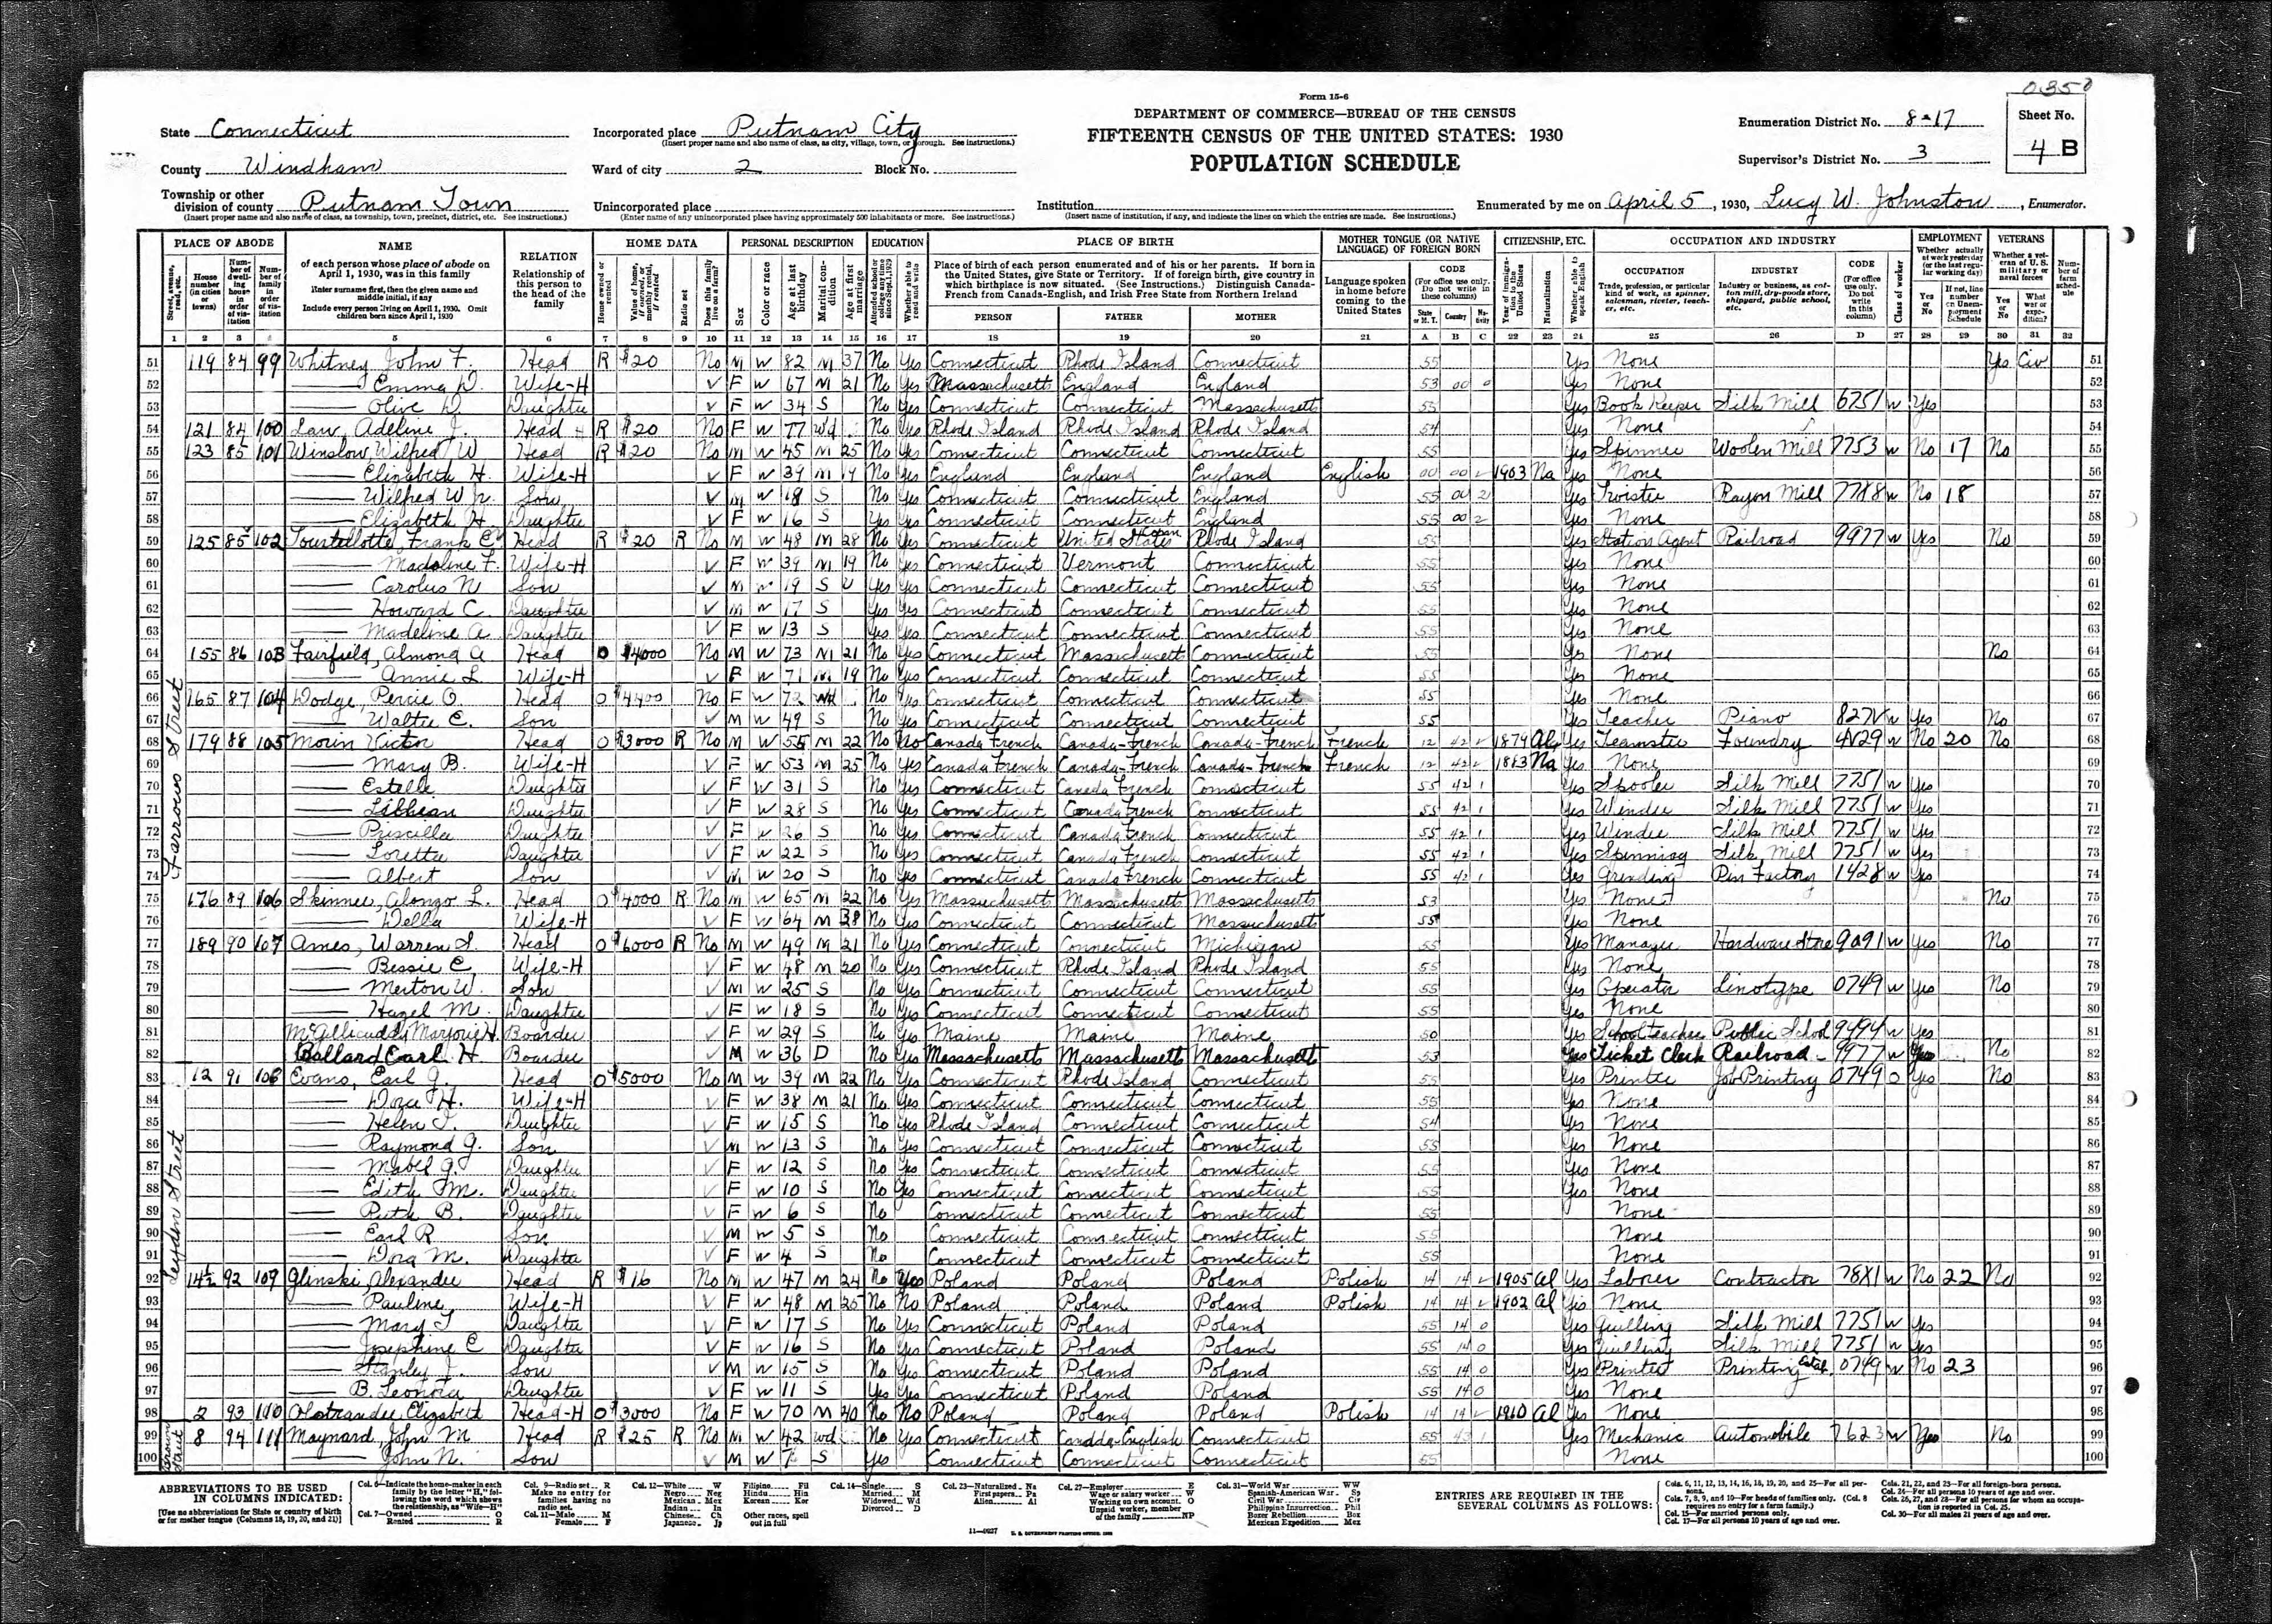 0350
Form 15-6
DEPARTMENT OF COMMERCE—BUREAU OF THE CENSUS
FIFTEENTH CENSUS OF THE UNITED STATES: 1930
POPULATION SCHEDULE
State Connecticut
County Windham
Township or other division of county Putnam Town
(Insert proper name and also name of class, as township, town, precinct, district, etc. See instructions.)
Incorporated place Putnam City
(Insert proper name and also name of class, as city, village, town, or borough. See instructions.)
Ward of city 2 Block No.
Unincorporated place
(Enter name of any unincorporated place having approximately 500 inhabitants or more. See instructions.)
Institution
(Insert name of institution, if any, and indicate the lines on which the entries are made. See instructions.)
Enumeration District No. 8-17
Supervisor's District No. 3
Sheet No. 4 B
Enumerated by me on April 5, 1930, Lucy W. Johnston, Enumerator.
PLACE OF ABODE NAME RELATION HOME DATA PERSONAL DESCRIPTION EDUCATION PLACE OF BIRTH MOTHER TONGUE (OR NATIVE LANGUAGE) OF FOREIGN BORN CITIZENSHIP, ETC. OCCUPATION AND INDUSTRY EMPLOYMENT VETERANS
of each person whose place of abode on April 1, 1930, was in this family
Enter surname first, then the given name and middle initial, if any
Include every person living on April 1, 1930. Omit children born since April 1, 1930
Relationship of this person to the head of the family
Place of birth of each person enumerated and of his or her parents. If born in the United States, give State or Territory. If of foreign birth, give country in which birthplace is now situated. (See Instructions.) Distinguish Canada-French from Canada-English, and Irish Free State from Northern Ireland
PERSON FATHER MOTHER
Language spoken in home before coming to the United States
OCCUPATION INDUSTRY CODE
1 2 3 4 5 6 7 8 9 10 11 12 13 14 15 16 17 18 19 20 21 A B C 22 23 24 25 26 D 27 28 29 30 31 32
51 119 84 99 Whitney John F. Head R $20 No M W 82 M 37 No Yes Connecticut Rhode Island Connecticut 55 Yes None Yes Civ 51
52 Emma D. Wife-H F W 67 M 21 No Yes Massachusetts England England 53 00 0 Yes None 52
53 Olive D Daughter F W 34 S No Yes Connecticut Connecticut Massachusetts 55 Yes Book Keeper Silk Mill 6751 W Yes 53
54 121 84 100 Law, Adeline J. Head R $20 No F W 77 Wd No Yes Rhode Island Rhode Island Rhode Island 54 Yes None 54
55 123 85 101 Winslow, Wilfred W Head R $20 No M W 45 M 25 No Yes Connecticut Connecticut Connecticut 55 Yes Spinner Woolen Mill 7753 W No 17 No 55
56 Elizabeth H. Wife-H F W 39 M 19 No Yes England England England English 00 00 1903 Na Yes None 56
57 Wilfred W Jr. Son M W 18 S No Yes Connecticut Connecticut England 55 00 2 Yes Twister Rayon Mill 77X8 W No 18 57
58 Elizabeth H Daughter F W 16 S Yes Yes Connecticut Connecticut England 55 00 2 Yes None 58
59 125 85 102 Tourtellotte, Frank E Head R $20 R No M W 48 M 28 No Yes Connecticut United States Rhode Island 55 Yes Station Agent Railroad 9977 W Yes No 59
60 Madeline F. Wife-H F W 39 M 19 No Yes Connecticut Vermont Connecticut 55 Yes None 60
61 Carolus N Son M W 19 S Yes Yes Connecticut Connecticut Connecticut 55 Yes None 61
62 Howard C. Daughter M W 17 S Yes Yes Connecticut Connecticut Connecticut 55 Yes None 62
63 Madeline A Daughter F W 13 S Yes Yes Connecticut Connecticut Connecticut 55 Yes None 63
64 155 86 103 Fairfield, Almond A Head O $4000 No M W 73 M 21 No Yes Connecticut Massachusetts Connecticut 55 Yes None No 64
65 Annie L. Wife-H F W 71 M 19 No Yes Connecticut Connecticut Connecticut 55 Yes None 65
66 165 87 104 Dodge, Percie O Head O $4400 No F W 72 Wd No Yes Connecticut Connecticut Connecticut 55 Yes None 66
67 Walter E. Son M W 49 S No Yes Connecticut Connecticut Connecticut 55 Yes Teacher Piano 827V W Yes No 67
68 179 88 105 Morin Victor Head O $3000 R No M W 55 M 22 No No Canada French Canada-French Canada-French French 12 42 1879 Al Yes Teamster Foundry 4V29 W No 20 No 68
69 Mary B. Wife-H F W 53 M 25 No Yes Canada French Canada-French Canada-French French 12 42 1883 Na Yes None 69
70 Estelle Daughter F W 31 S No Yes Connecticut Canada French Connecticut 55 42 1 Yes Spooler Silk Mill 7751 W Yes 70
71 Lillian Daughter F W 28 S No Yes Connecticut Canada French Connecticut 55 42 1 Yes Winder Silk Mill 7751 W Yes 71
72 Priscilla Daughter F W 26 S No Yes Connecticut Canada French Connecticut 55 42 1 Yes Winder Silk Mill 7751 W Yes 72
73 Loretta Daughter F W 22 S No Yes Connecticut Canada French Connecticut 55 42 1 Yes Spinning Silk Mill 7751 W Yes 73
74 Albert Son M W 20 S No Yes Connecticut Canada French Connecticut 55 42 1 Yes Grinding Pin Factory 1428 W Yes 74
75 176 89 106 Skinner, Alonzo L. Head O $4000 R No M W 65 M 22 No Yes Massachusetts Massachusetts Massachusetts 53 Yes None No 75
76 Della Wife-H F W 64 M 38 No Yes Connecticut Connecticut Massachusetts 55 Yes None 76
77 189 90 107 Ames, Warren S. Head O $6000 R No M W 49 M 21 No Yes Connecticut Connecticut Michigan 55 Yes Manager Hardware Store 9091 W Yes No 77
78 Bessie E. Wife-H F W 48 M 20 No Yes Connecticut Rhode Island Rhode Island 55 Yes None 78
79 Merton W. Son M W 25 S No Yes Connecticut Connecticut Connecticut 55 Yes Operator Linotype 0749 W Yes No 79
80 Hazel M. Daughter F W 18 S No Yes Connecticut Connecticut Connecticut 55 Yes None 80
81 McGillicuddy Marjorie H. Boarder F W 29 S No Yes Maine Maine Maine 50 Yes School teacher Public School 9494 W Yes 81
82 Ballard Earl H. Boarder M W 36 D No Yes Massachusetts Massachusetts Massachusetts 53 Yes Ticket Clerk Railroad 9977 W Yes No 82
83 12 91 108 Evans, Earl G. Head O $5000 No M W 39 M 22 No Yes Connecticut Rhode Island Connecticut 55 Yes Printer Job Printing 0749 O Yes No 83
84 Dora H. Wife-H F W 38 M 21 No Yes Connecticut Connecticut Connecticut 55 Yes None 84
85 Helen J. Daughter F W 15 S No Yes Rhode Island Connecticut Connecticut 54 Yes None 85
86 Raymond G. Son M W 13 S No Yes Connecticut Connecticut Connecticut 55 Yes None 86
87 Mabel G. Daughter F W 12 S No Yes Connecticut Connecticut Connecticut 55 Yes None 87
88 Edith M. Daughter F W 10 S No Yes Connecticut Connecticut Connecticut 55 Yes None 88
89 Ruth B. Daughter F W 6 S No Connecticut Connecticut Connecticut 55 None 89
90 Earl R Son M W 5 S No Connecticut Connecticut Connecticut 55 None 90
91 Dora M. Daughter F W 4 S No Connecticut Connecticut Connecticut 55 None 91
92 14½ 92 109 Glinski, Alexander Head R $16 No M W 47 M 24 No Yes Poland Poland Poland Polish 14 14 1905 Al Yes Laborer Contractor 78X1 W No 22 No 92
93 Pauline Wife-H F W 48 M 25 No No Poland Poland Poland Polish 14 14 1902 Al Yes None 93
94 Mary T Daughter F W 17 S No Yes Connecticut Poland Poland 55 14 0 Yes Quilling Silk Mill 7751 W Yes 94
95 Josephine C Daughter F W 16 S No Yes Connecticut Poland Poland 55 14 0 Yes Quilling Silk Mill 7751 W Yes 95
96 Stanley J. Son M W 15 S No Yes Connecticut Poland Poland 55 14 0 Yes Printer Printing Estab. 0749 W No 23 96
97 B. Leonora Daughter F W 11 S Yes Yes Connecticut Poland Poland 55 14 0 Yes None 97
98 2 93 110 Elizabeth Head-H O $3000 No F W 70 M 40 No No Poland Poland Poland Polish 14 14 1910 Al Yes None 98
99 8 94 111 Maynard, John M Head R $25 R No M W 42 Wd No Yes Connecticut Canada-English Connecticut 55 43 1 Yes Mechanic Automobile 7623 W Yes No 99
100 John N. Son M W 7 S Yes Connecticut Connecticut Connecticut 55 None 100
Farrows Street
Leyden Street
ABBREVIATIONS TO BE USED IN COLUMNS INDICATED:
[Use no abbreviations for State or country of birth or for mother tongue (Columns 18, 19, 20, and 21)]
Col. 6—Indicate the home-maker in each family by the letter "H," following the word which shows the relationship, as "Wife—H"
Col. 7—Owned O Rented R
Col. 9—Radio set R Make no entry for families having no radio set.
Col. 11—Male M Female F
Col. 12—White W Negro Neg Mexican Mex Indian In Chinese Ch Japanese Jp Filipino Fil Hindu Hin Korean Kor Other races, spell out in full
Col. 14—Single S Married M Widowed Wd Divorced D
Col. 23—Naturalized Na First papers Pa Alien Al
Col. 27—Employer E Wage or salary worker W Working on own account O Unpaid worker, member of the family NP
Col. 31—World War WW Spanish-American War Sp Civil War Civ Philippine Insurrection Phil Boxer Rebellion Box Mexican Expedition Mex
ENTRIES ARE REQUIRED IN THE SEVERAL COLUMNS AS FOLLOWS:
Cols. 6, 11, 12, 13, 14, 16, 18, 19, 20, and 25—For all persons.
Cols. 7, 8, 9, and 10—For heads of families only. (Col. 8 requires no entry for a farm family.)
Col. 15—For married persons only.
Col. 17—For all persons 10 years of age and over.
Cols. 21, 22, and 23—For all foreign-born persons.
Col. 24—For all persons 10 years of age and over.
Cols. 26, 27, and 28—For all persons for whom an occupation is reported in Col. 25.
Col. 30—For all males 21 years of age and over.
11—9027 U. S. GOVERNMENT PRINTING OFFICE